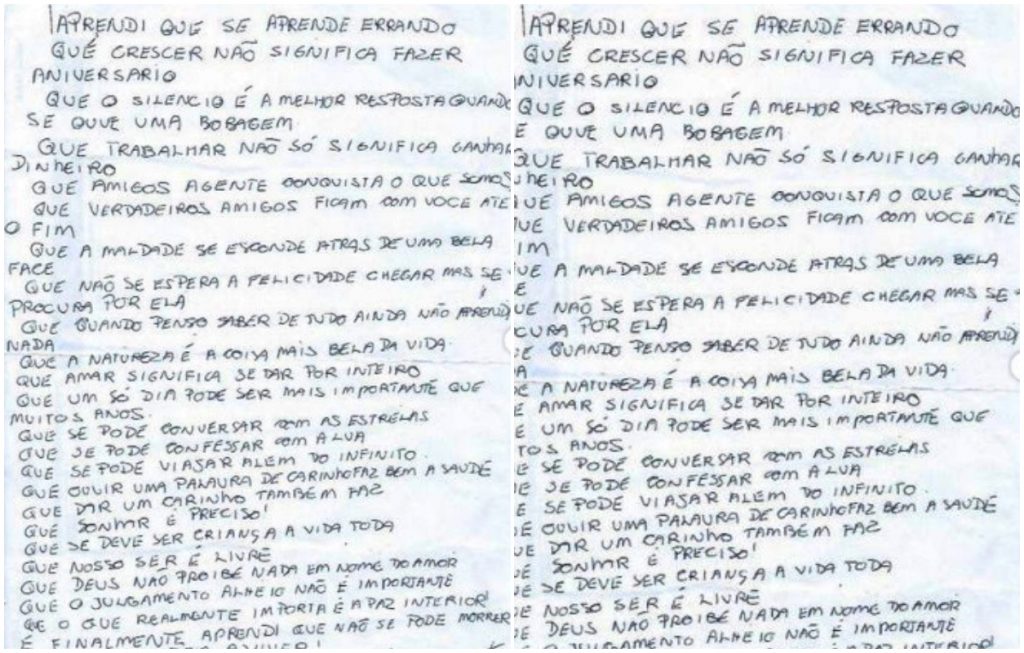 APRENDI QUE SE APRENDE ERRANDO
QUE CRESCER NÃO SIGNIFICA FAZER
ANIVERSARIO
QUE O SILENCIO É A MELHOR RESPOSTA QUANDO
SE OUVE UMA BOBAGEM
QUE TRABALHAR NÃO SÓ SIGNIFICA GANHAR
DINHEIRO
QUE AMIGOS AGENTE CONQUISTA O QUE SOMOS
QUE VERDADEIROS AMIGOS FICAM COM VOCE ATE
O FIM
QUE A MALDADE SE ESCONDE ATRAS DE UMA BELA
FACE
QUE NÃO SE ESPERA A FELICIDADE CHEGAR MAS SE
PROCURA POR ELA
QUE QUANDO PENSO SABER DE TUDO AINDA NÃO APRENDI
NADA
QUE A NATUREZA É A COISA MAIS BELA DA VIDA.
QUE AMAR SIGNIFICA SE DAR POR INTEIRO
QUE UM SÓ DIA PODE SER MAIS IMPORTANTE QUE
MUITOS ANOS.
QUE SE PODE CONVERSAR COM AS ESTRELAS
QUE SE PODE CONFESSAR COM A LUA
QUE SE PODE VIAJAR ALEM DO INFINITO.
QUE OUVIR UMA PALAVRA DE CARINHO FAZ BEM A SAUDE
QUE DAR UM CARINHO TAMBÉM FAZ
QUE SONHAR É PRECISO!
QUE SE DEVE SER CRIANÇA A VIDA TODA
QUE NOSSO SER É LIVRE
QUE DEUS NÃO PROIBE NADA EM NOME DO AMOR
QUE O JULGAMENTO ALHEIO NÃO É IMPORTANTE
QE O QUE REALMENTE IMPORTA É A PAZ INTERIOR!
E FINALMENTE APRENDI QUE NÃO SE PODE MORRER
A VIVER!
APRENDI QUE SE APRENDE ERRANDO
QUE CRESCER NÃO SIGNIFICA FAZER
NIVERSARIO
QUE O SILENCIO É A MELHOR RESPOSTA QUANDO
E OUVE UMA BOBAGEM
QUE TRABALHAR NÃO SÓ SIGNIFICA GANHAR
NHEIRO
UE AMIGOS AGENTE CONQUISTA O QUE SOMOS
UE VERDADEIROS AMIGOS FICAM COM VOCE ATE
IM
UE A MALDADE SE ESCONDE ATRAS DE UMA BELA
E
UE NÃO SE ESPERA A FELICIDADE CHEGAR MAS SE
CURA POR ELA
UE QUANDO PENSO SABER DE TUDO AINDA NÃO APRENDI
A
E A NATUREZA É A COISA MAIS BELA DA VIDA.
E AMAR SIGNIFICA SE DAR POR INTEIRO
E UM SÓ DIA PODE SER MAIS IMPORTANTE QUE
TOS ANOS.
E SE PODE CONVERSAR COM AS ESTRELAS
E SE PODE CONFESSAR COM A LUA
E SE PODE VIAJAR ALEM DO INFINITO.
E OUVIR UMA PALAVRA DE CARINHO FAZ BEM A SAUDE
UE DAR UM CARINHO TAMBÉM FAZ
UE SONHAR É PRECISO!
UE SE DEVE SER CRIANÇA A VIDA TODA
UE NOSSO SER É LIVRE
UE DEUS NÃO PROIBE NADA EM NOME DO AMOR
O JULGAMENTO ALHEIO NÃO É IMPORTANTE
A PAZ INTERIOR!